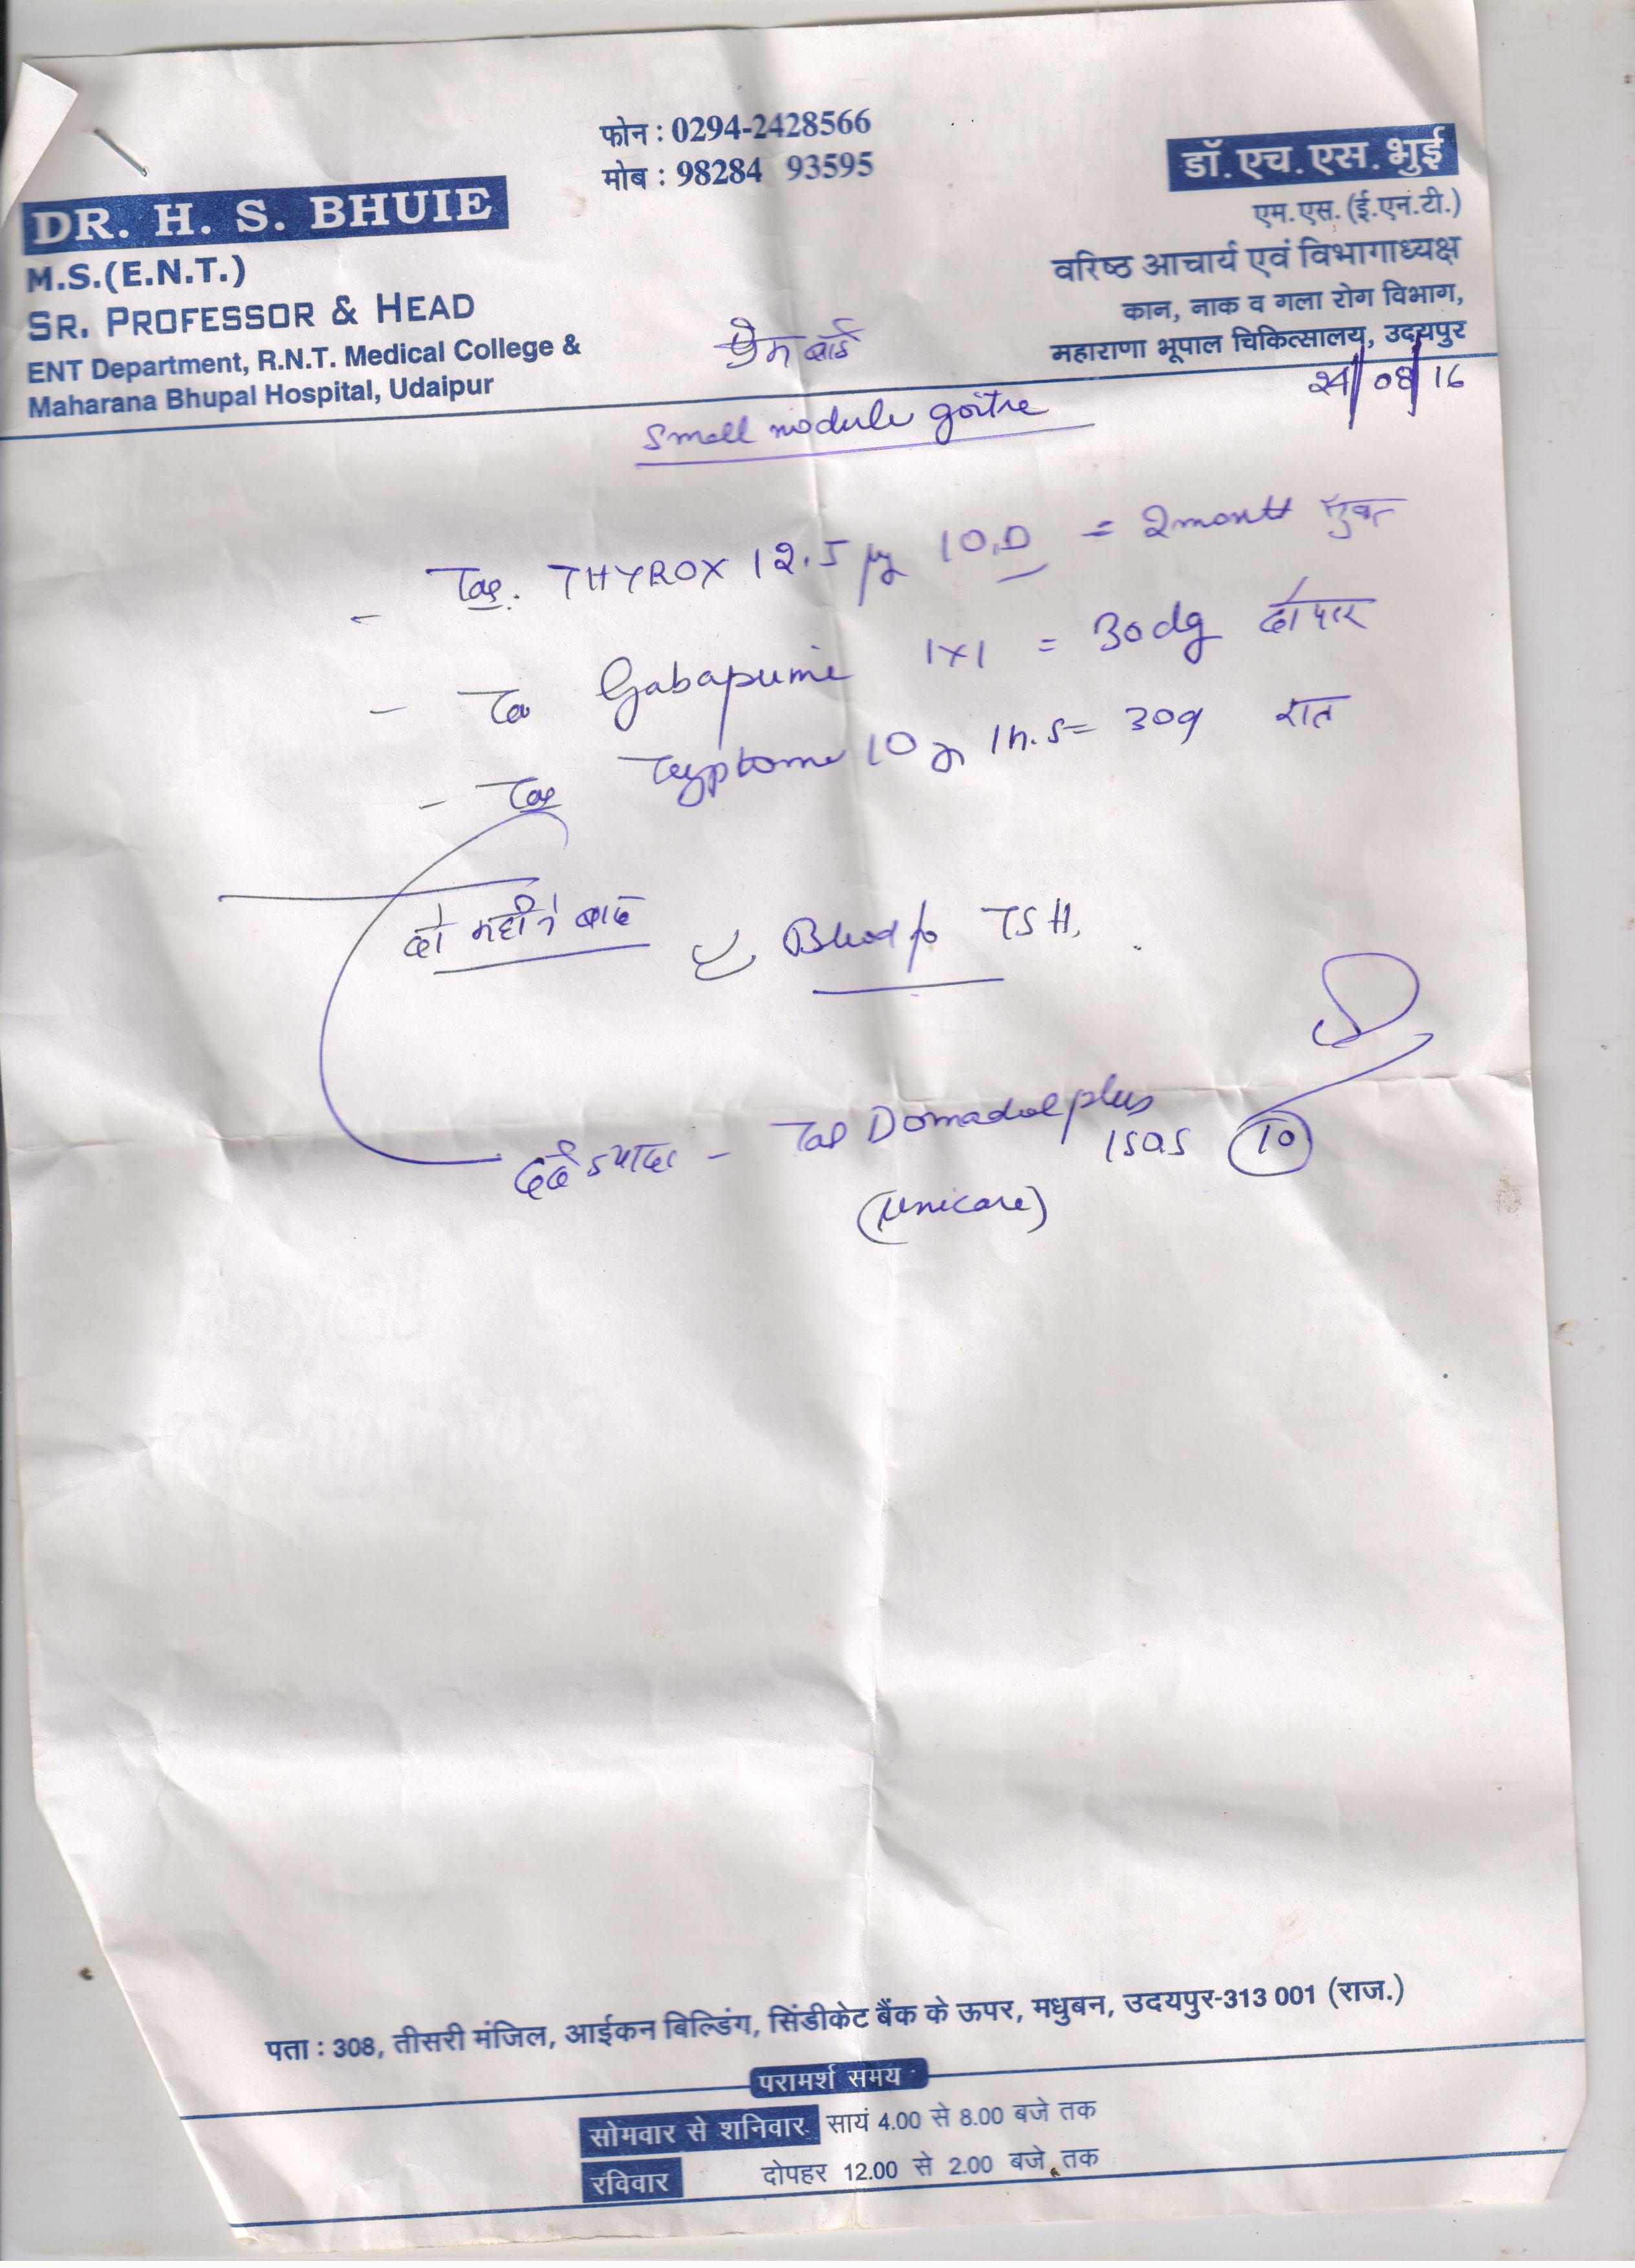 फोन : 0294-2428566
मोब : 98284 93595
DR. H. S. BHUIE
M.S.(E.N.T.)
SR. PROFESSOR & HEAD
ENT Department, R.N.T. Medical College &
Maharana Bhupal Hospital, Udaipur
डॉ. एच. एस. भुई
एम.एस. (ई.एन.टी.)
वरिष्ठ आचार्य एवं विभागाध्यक्ष
कान, नाक व गला रोग विभाग,
महाराणा भूपाल चिकित्सालय, उदयपुर
प्रेम बाई
24/08/16
Small nodule goitre
- Tab. THYROX 12.5 µg 1 O.D = 2 month
- Tab 1x1 = 30 दोपहर
- Tab 10 1 h.s = 30 रात
दो महीने बाद Blood for TSH.
दर्द ज्यादा - Tab Domadol plus
1 SOS 10
(Unicare)
पता : 308, तीसरी मंजिल, आईकन बिल्डिंग, सिंडीकेट बैंक के ऊपर, मधुबन, उदयपुर-313 001 (राज.)
परामर्श समय
सोमवार से शनिवार सायं 4.00 से 8.00 बजे तक
रविवार दोपहर 12.00 से 2.00 बजे तक